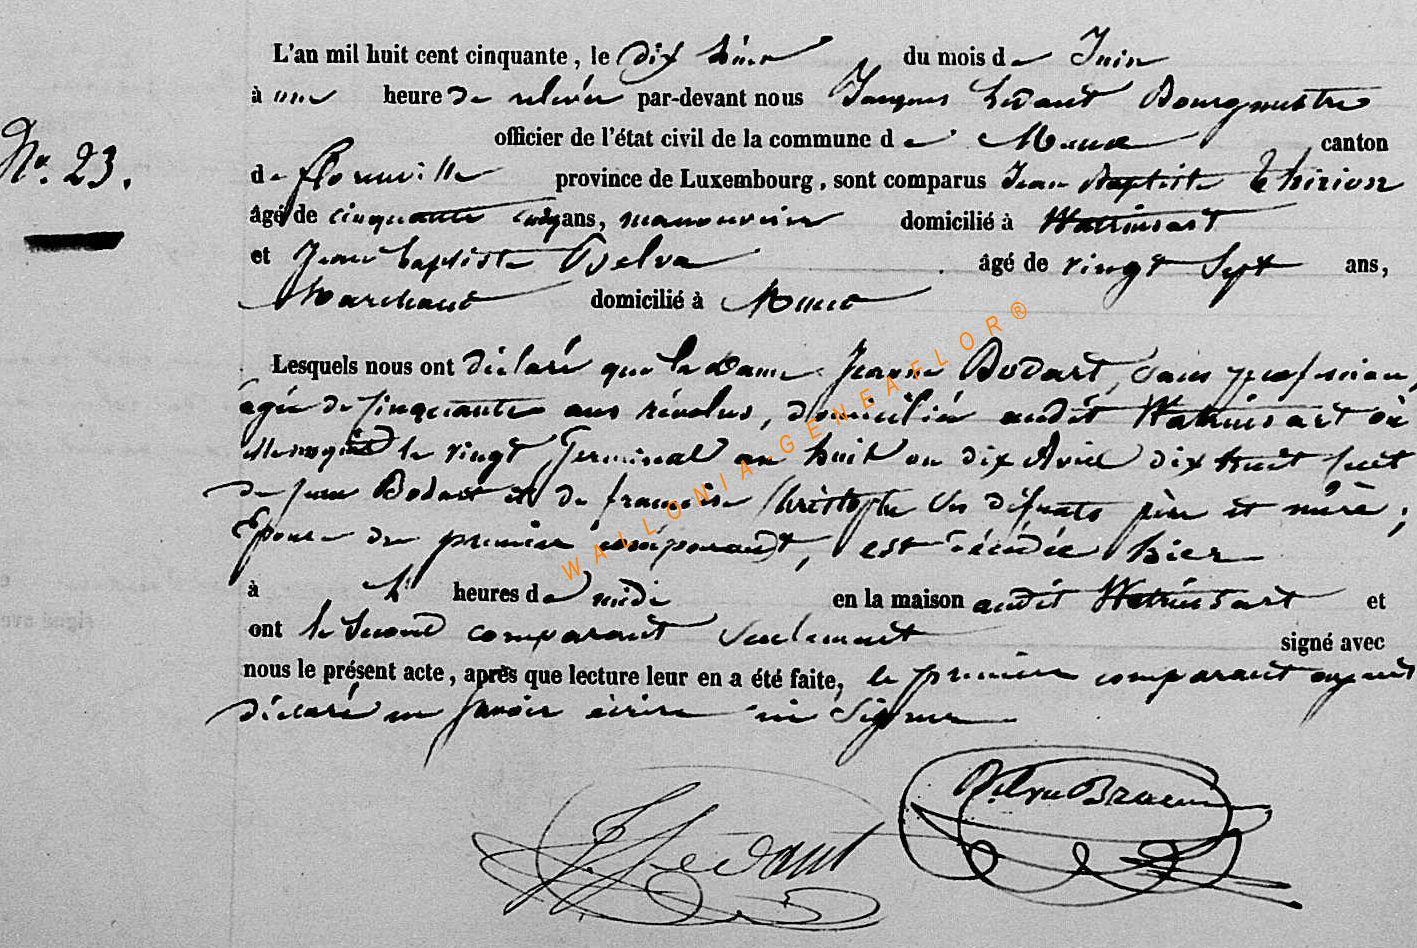 L'an mil huit cent cinquante, le dix du mois de Juin
à une heure de relevée par-devant nous Jacques Hédant Bourgmestre
officier de l'état civil de la commune de canton
No. 23.
de Florenville province de Luxembourg, sont comparus Jean Baptiste Thirion
âgé de cinquante ans, manouvrier domicilié à Watrinsart
et Jean baptiste Delva âgé de vingt Sept ans,
Marchand domicilié à
Lesquels nous ont déclaré que la dame Jeanne Bodart, sans profession,
agée de cinquante ans révolus, domiciliée audit Watrinsart où
elle naquit le vingt Germinal an huit ou dix Avril dix huit cent
de Jean Bodart et de françoise Christophe ses défunts père et mère ;
Epouse du premier comparant, est décédée hier
à heures de midi en la maison audit Watrinsart et
ont le Second comparant Seulement signé avec
nous le présent acte, après que lecture leur en a été faite, le premier comparant ayant
déclaré ne savoir écrire ni Signer
J Hédant
WALLONIA-GENEAFLOR®